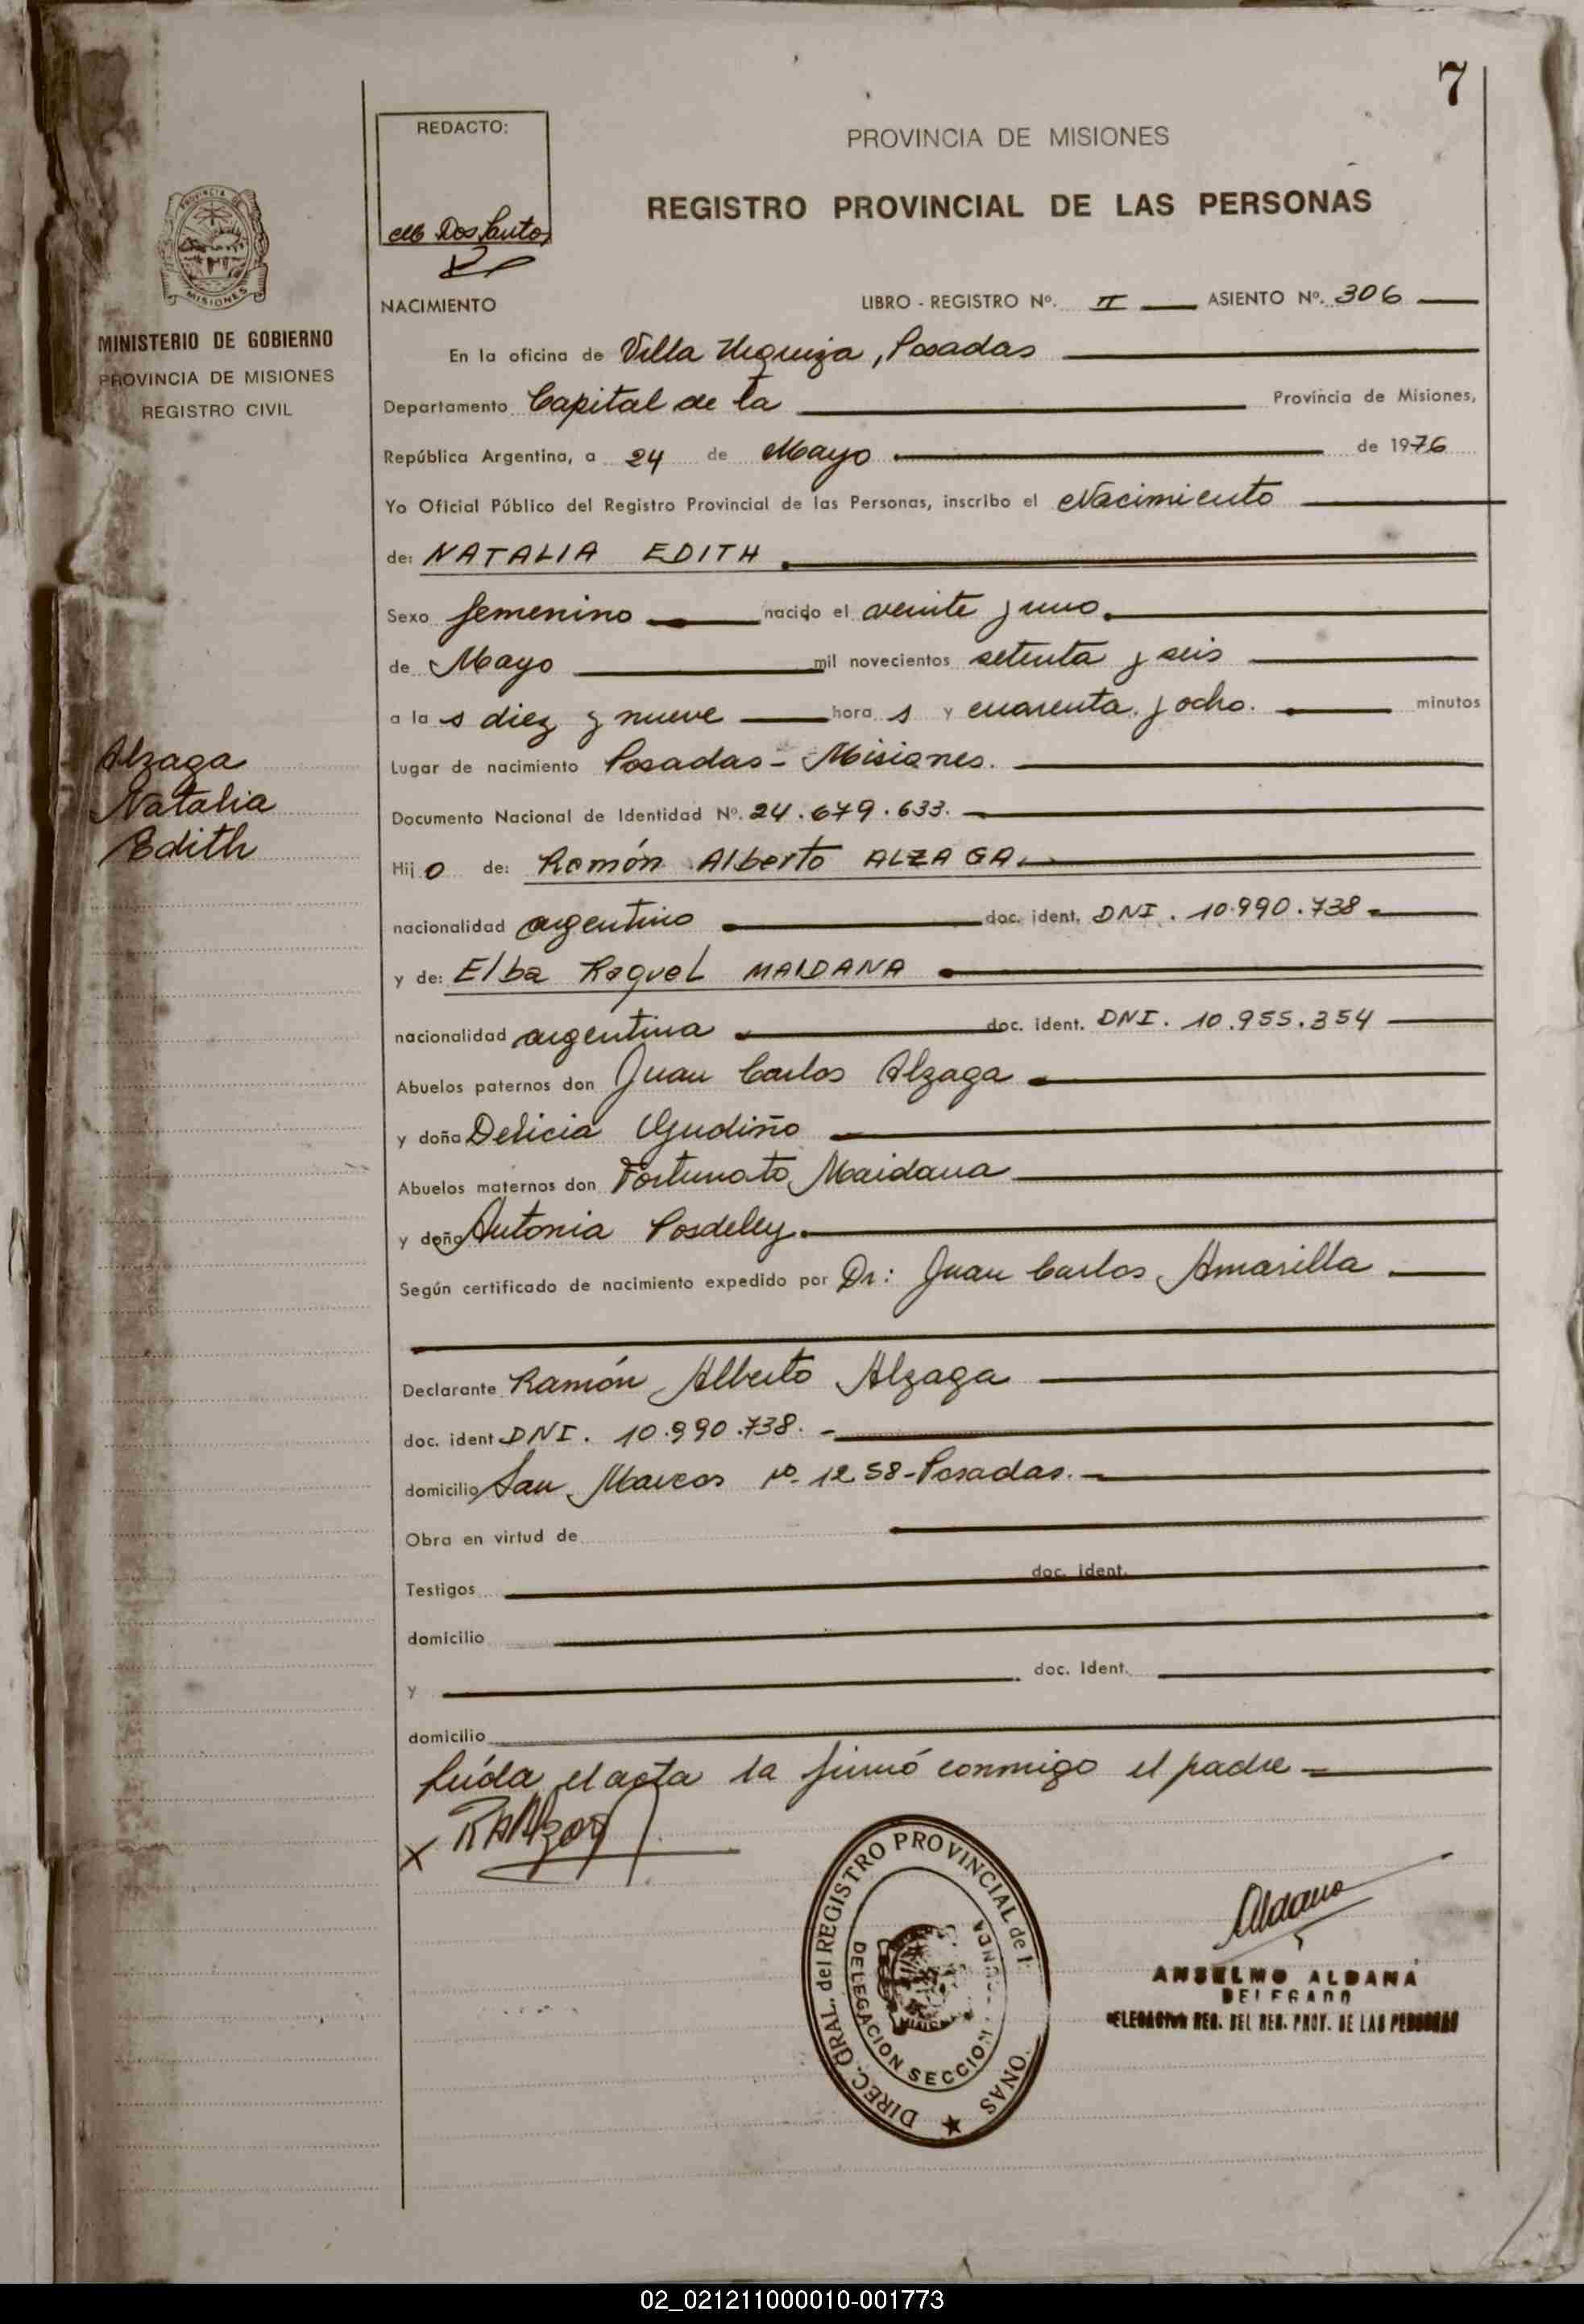 7
REDACTO:
M Dos Santos
PROVINCIA DE MISIONES
REGISTRO PROVINCIAL DE LAS PERSONAS
PROVINCIA DE
MISIONES
MINISTERIO DE GOBIERNO
PROVINCIA DE MISIONES
REGISTRO CIVIL
NACIMIENTO LIBRO - REGISTRO Nº. II ASIENTO Nº. 306
En la oficina de Villa Urquiza, Posadas
Departamento Capital de la Provincia de Misiones,
República Argentina, a 24 de Mayo de 1976
Yo Oficial Público del Registro Provincial de las Personas, inscribo el Nacimiento
de: NATALIA EDITH
Sexo femenino nacido el veinte y uno
de Mayo mil novecientos setenta y seis
a la s diez y nueve hora s y cuarenta y ocho. minutos
Lugar de nacimiento Posadas - Misiones.
Documento Nacional de Identidad Nº. 24.679.633.
Alzaga
Natalia
Edith
Hij o de: Ramón Alberto ALZAGA
nacionalidad argentino doc. ident. DNI. 10.990.738
y de: Elba Raquel MAIDANA
nacionalidad argentina doc. ident. DNI. 10.955.354
Abuelos paternos don Juan Carlos Alzaga
y doña Delicia Gudiño
Abuelos maternos don Fortunato Maidana
y doña Antonia Posdeley
Según certificado de nacimiento expedido por Dr: Juan Carlos Amarilla
Declarante Ramón Alberto Alzaga
doc. ident DNI. 10.990.738. -
domicilio San Marcos Nº 1258 - Posadas. -
Obra en virtud de
Testigos doc. ident.
domicilio
y doc. Ident.
domicilio
Leída el acta la firmó conmigo el padre
X RAAlzaga
DIREC. GRAL. del REGISTRO PROVINCIAL de
ONAS
DELEGACION SECCION
Aldana
ANSELMO ALDANA
DELEGADO
REG. DEL REG. PROV. DE LAS PERSONAS
02_021211000010-001773